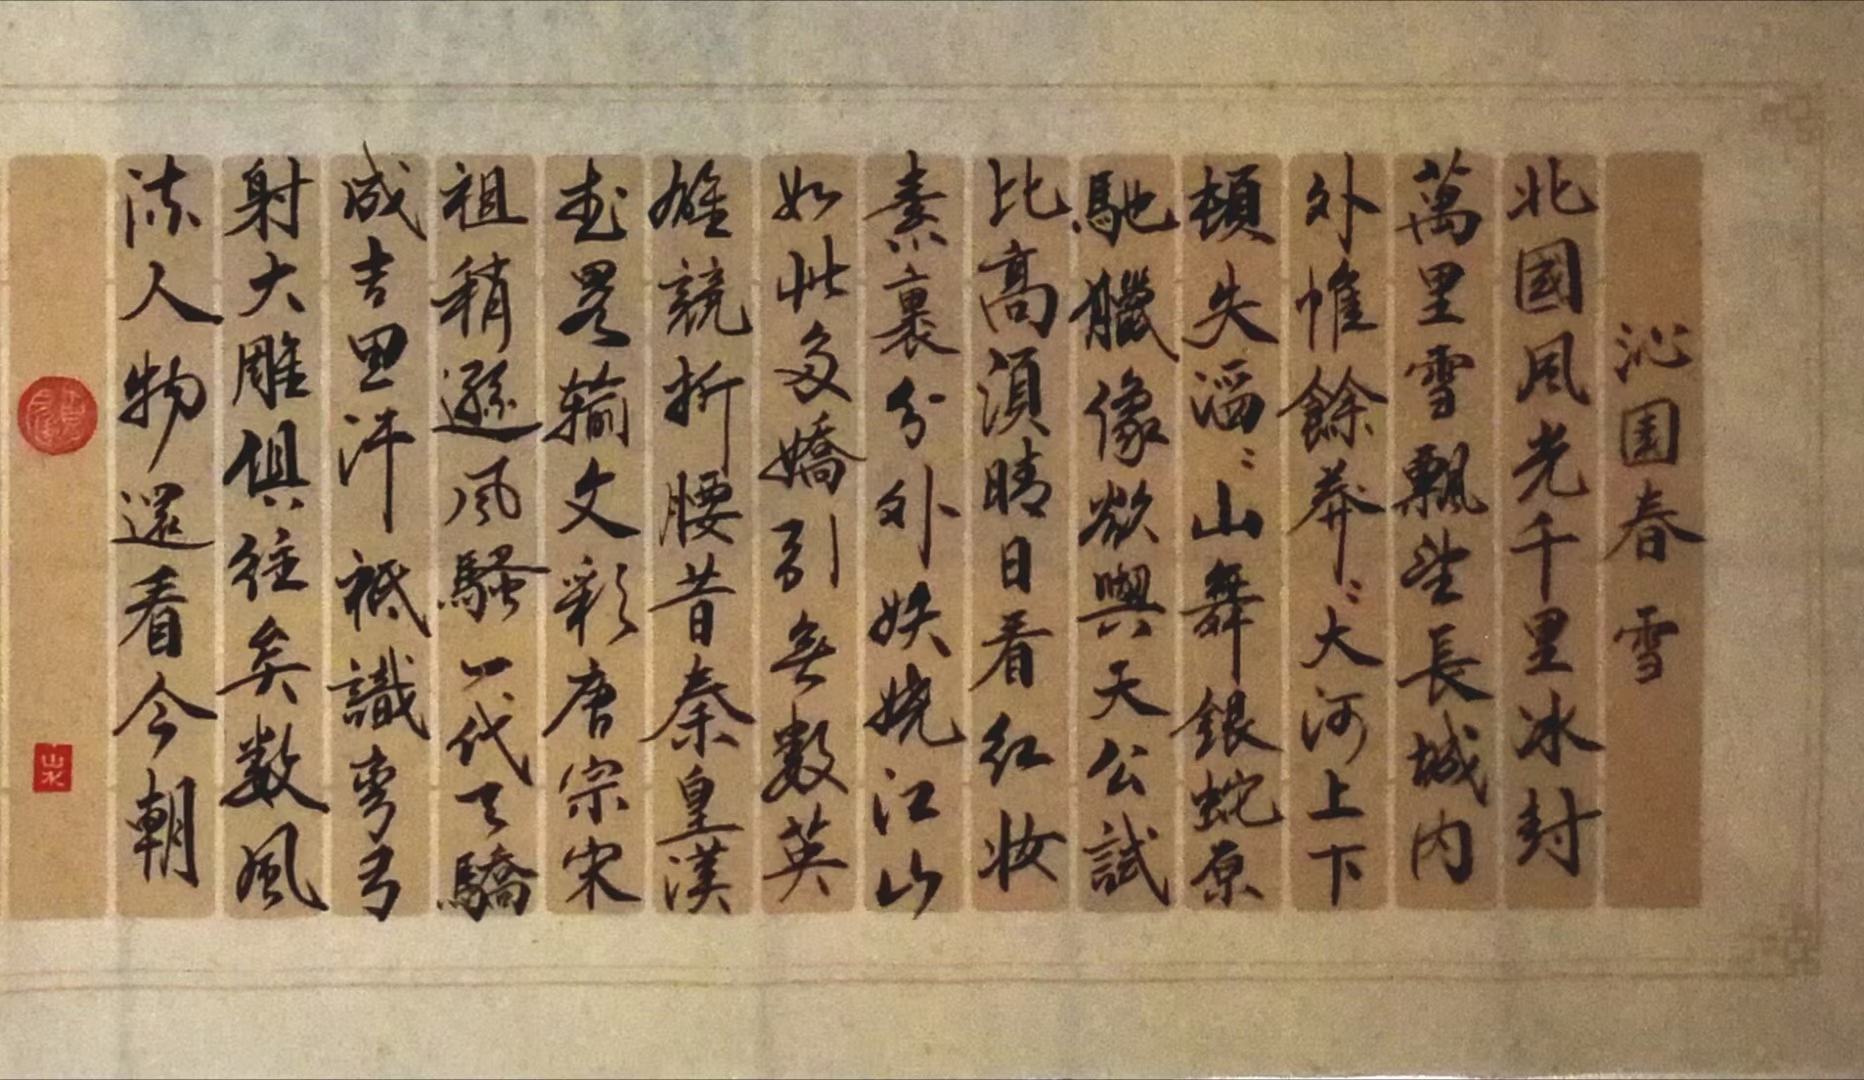 沁園春 雪
北國風光千里冰封
萬里雪飄望長城内
外惟餘莽〻大河上下
頓失滔〻山舞銀蛇原
馳臘像欲與天公試
比高須晴日看红妆
素裹分外妖娆江山
如此多嬌引無数英
雄競折腰昔秦皇漢
武畧输文彩唐宗宋
祖稍遜風騷一代天驕
成吉思汗祇識彎弓
射大雕俱往矣数風
流人物還看今朝
山水